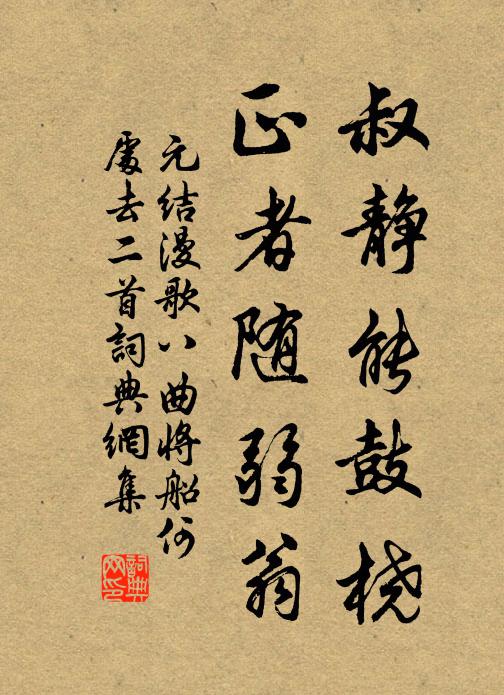 叔静能鼓桡
正者随弱翁
元结漫歌八曲将船何
處去二首詞典網集
詞典网印